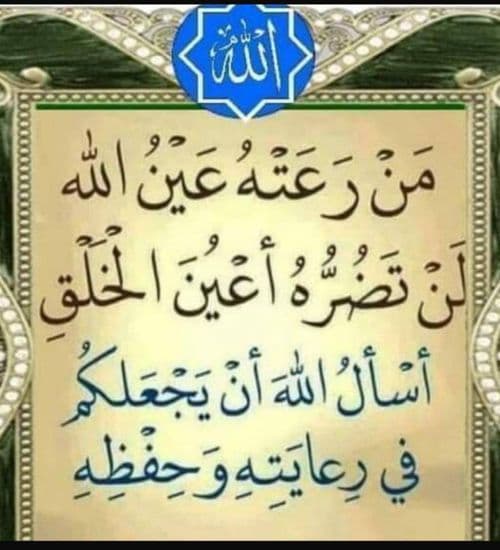 الله
مَنْ رَعَتْهُ عَيْنُ الله
لَنْ تَضُرُّهُ أعْيُنَ الْخَلْقِ
أسْألُ اللهَ أنْ يَجْعَلَكُم
في رِعايَتِهِ وَحِفْظِهِ